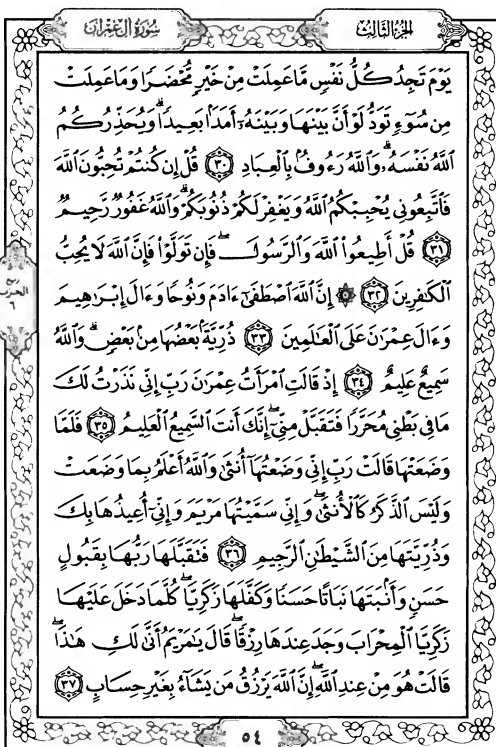 سُورَةُ آلِ عِمْرَانَ
الجُزْءُ الثَّالِثُ
يَوْمَ تَجِدُ كُلُّ نَفْسٍ مَّا عَمِلَتْ مِنْ خَيْرٍ مُّحْضَرًا وَمَا عَمِلَتْ
مِن سُوٓءٍ تَوَدُّ لَوْ أَنَّ بَيْنَهَا وَبَيْنَهُۥٓ أَمَدًۢا بَعِيدًاۗ وَيُحَذِّرُكُمُ
ٱللَّهُ نَفْسَهُۥۗ وَٱللَّهُ رَءُوفُۢ بِٱلْعِبَادِ ٣٠ قُلْ إِن كُنتُمْ تُحِبُّونَ ٱللَّهَ
فَٱتَّبِعُونِى يُحْبِبْكُمُ ٱللَّهُ وَيَغْفِرْ لَكُمْ ذُنُوبَكُمْۗ وَٱللَّهُ غَفُورٌ رَّحِيمٌ
٣١ قُلْ أَطِيعُوا۟ ٱللَّهَ وَٱلرَّسُولَۖ فَإِن تَوَلَّوْا۟ فَإِنَّ ٱللَّهَ لَا يُحِبُّ
ٱلْكَٰفِرِينَ ٣٢ ۞ إِنَّ ٱللَّهَ ٱصْطَفَىٰٓ ءَادَمَ وَنُوحًا وَءَالَ إِبْرَٰهِيمَ
وَءَالَ عِمْرَٰنَ عَلَى ٱلْعَٰلَمِينَ ٣٣ ذُرِّيَّةَۢ بَعْضُهَا مِنۢ بَعْضٍۗ وَٱللَّهُ
سَمِيعٌ عَلِيمٌ ٣٤ إِذْ قَالَتِ ٱمْرَأَتُ عِمْرَٰنَ رَبِّ إِنِّى نَذَرْتُ لَكَ
مَا فِى بَطْنِى مُحَرَّرًا فَتَقَبَّلْ مِنِّىٓۖ إِنَّكَ أَنتَ ٱلسَّمِيعُ ٱلْعَلِيمُ ٣٥ فَلَمَّا
وَضَعَتْهَا قَالَتْ رَبِّ إِنِّى وَضَعْتُهَآ أُنثَىٰ وَٱللَّهُ أَعْلَمُ بِمَا وَضَعَتْ
وَلَيْسَ ٱلذَّكَرُ كَٱلْأُنثَىٰۖ وَإِنِّى سَمَّيْتُهَا مَرْيَمَ وَإِنِّىٓ أُعِيذُهَا بِكَ
وَذُرِّيَّتَهَا مِنَ ٱلشَّيْطَٰنِ ٱلرَّجِيمِ ٣٦ فَتَقَبَّلَهَا رَبُّهَا بِقَبُولٍ
حَسَنٍ وَأَنۢبَتَهَا نَبَاتًا حَسَنًا وَكَفَّلَهَا زَكَرِيَّاۖ كُلَّمَا دَخَلَ عَلَيْهَا
زَكَرِيَّا ٱلْمِحْرَابَ وَجَدَ عِندَهَا رِزْقًاۖ قَالَ يَٰمَرْيَمُ أَنَّىٰ لَكِ هَٰذَاۖ
قَالَتْ هُوَ مِنْ عِندِ ٱللَّهِۖ إِنَّ ٱللَّهَ يَرْزُقُ مَن يَشَآءُ بِغَيْرِ حِسَابٍ ٣٧
٥٤